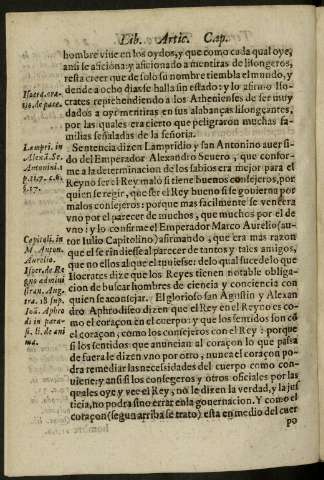 Lib. Artic. Cap.
hombre viue en los oydos, y que como cada qual oye,
ansi se aficiona: y aficionado a mentiras de lisongeros,
resta creer que de solo su nombre tiembla el mundo, y
dende a ocho dias se halla sin estado: y lo afirmo Iso-
crates reprehendiendo a los Athenienses de ser muy
dados a oyr mentiras en sus alabanças lisongeantes,
por las quales era cierto que peligraron muchas fa-
milias señaladas de la señoria.
Sentencia dizen Lampridio y san Antonino auer si-
do del Emperador Alexandro Seuero, que confor-
me a la determinacion de los sabios era mejor para el
Reyno ser el Rey malo si tiene buenos consejeros, por
quien se regir, que ser el Rey bueno si se gouierna por
malos consejeros: porque mas facilmente se vencera
vno por el parecer de muchos, que muchos por el de
vno: y lo confirma el Emperador Marco Aurelio (au-
tor Iulio Capitolino) afirmando, que era mas razon
que el se rindiesse al parecer de tantos y tales amigos,
que no ellos al que el quisiesse: de lo qual sucede lo que
Isocrates dize que los Reyes tienen notable obliga-
cion de buscar hombres de ciencia y conciencia con
quien se aconsejar. El glorioso san Agustin y Alexan
dro Aphrodiseo dizen que el Rey en el Reyno es co-
mo el coraçon en el cuerpo: y que los sentidos son cõ
el coraçon, como los consejeros con el Rey: porque
si los sentidos que anuncian al coraçon lo que passa
de fuera le dizen vno por otro, nunca el coraçon po-
dra remediar las necessidades del cuerpo como con-
uiene: y ansi si los consegeros y otros oficiales por las
quales oye y vee el Rey, no le dizen la verdad, y la jus
ticia, no podra sino errar en la gouernacion. Y como el
coraçon (segun arriba se trato) esta en medio del cuer
po
Isocra. ora-
tio. de pace.
Lampri. in
Alexã. Se.
Antonini. 1
p. ti. 7. c. 6.
§. 17.
Capitoli. in
M. Anton.
Aurelio.
Isocr. de Re
gno admini
stran. Aug.